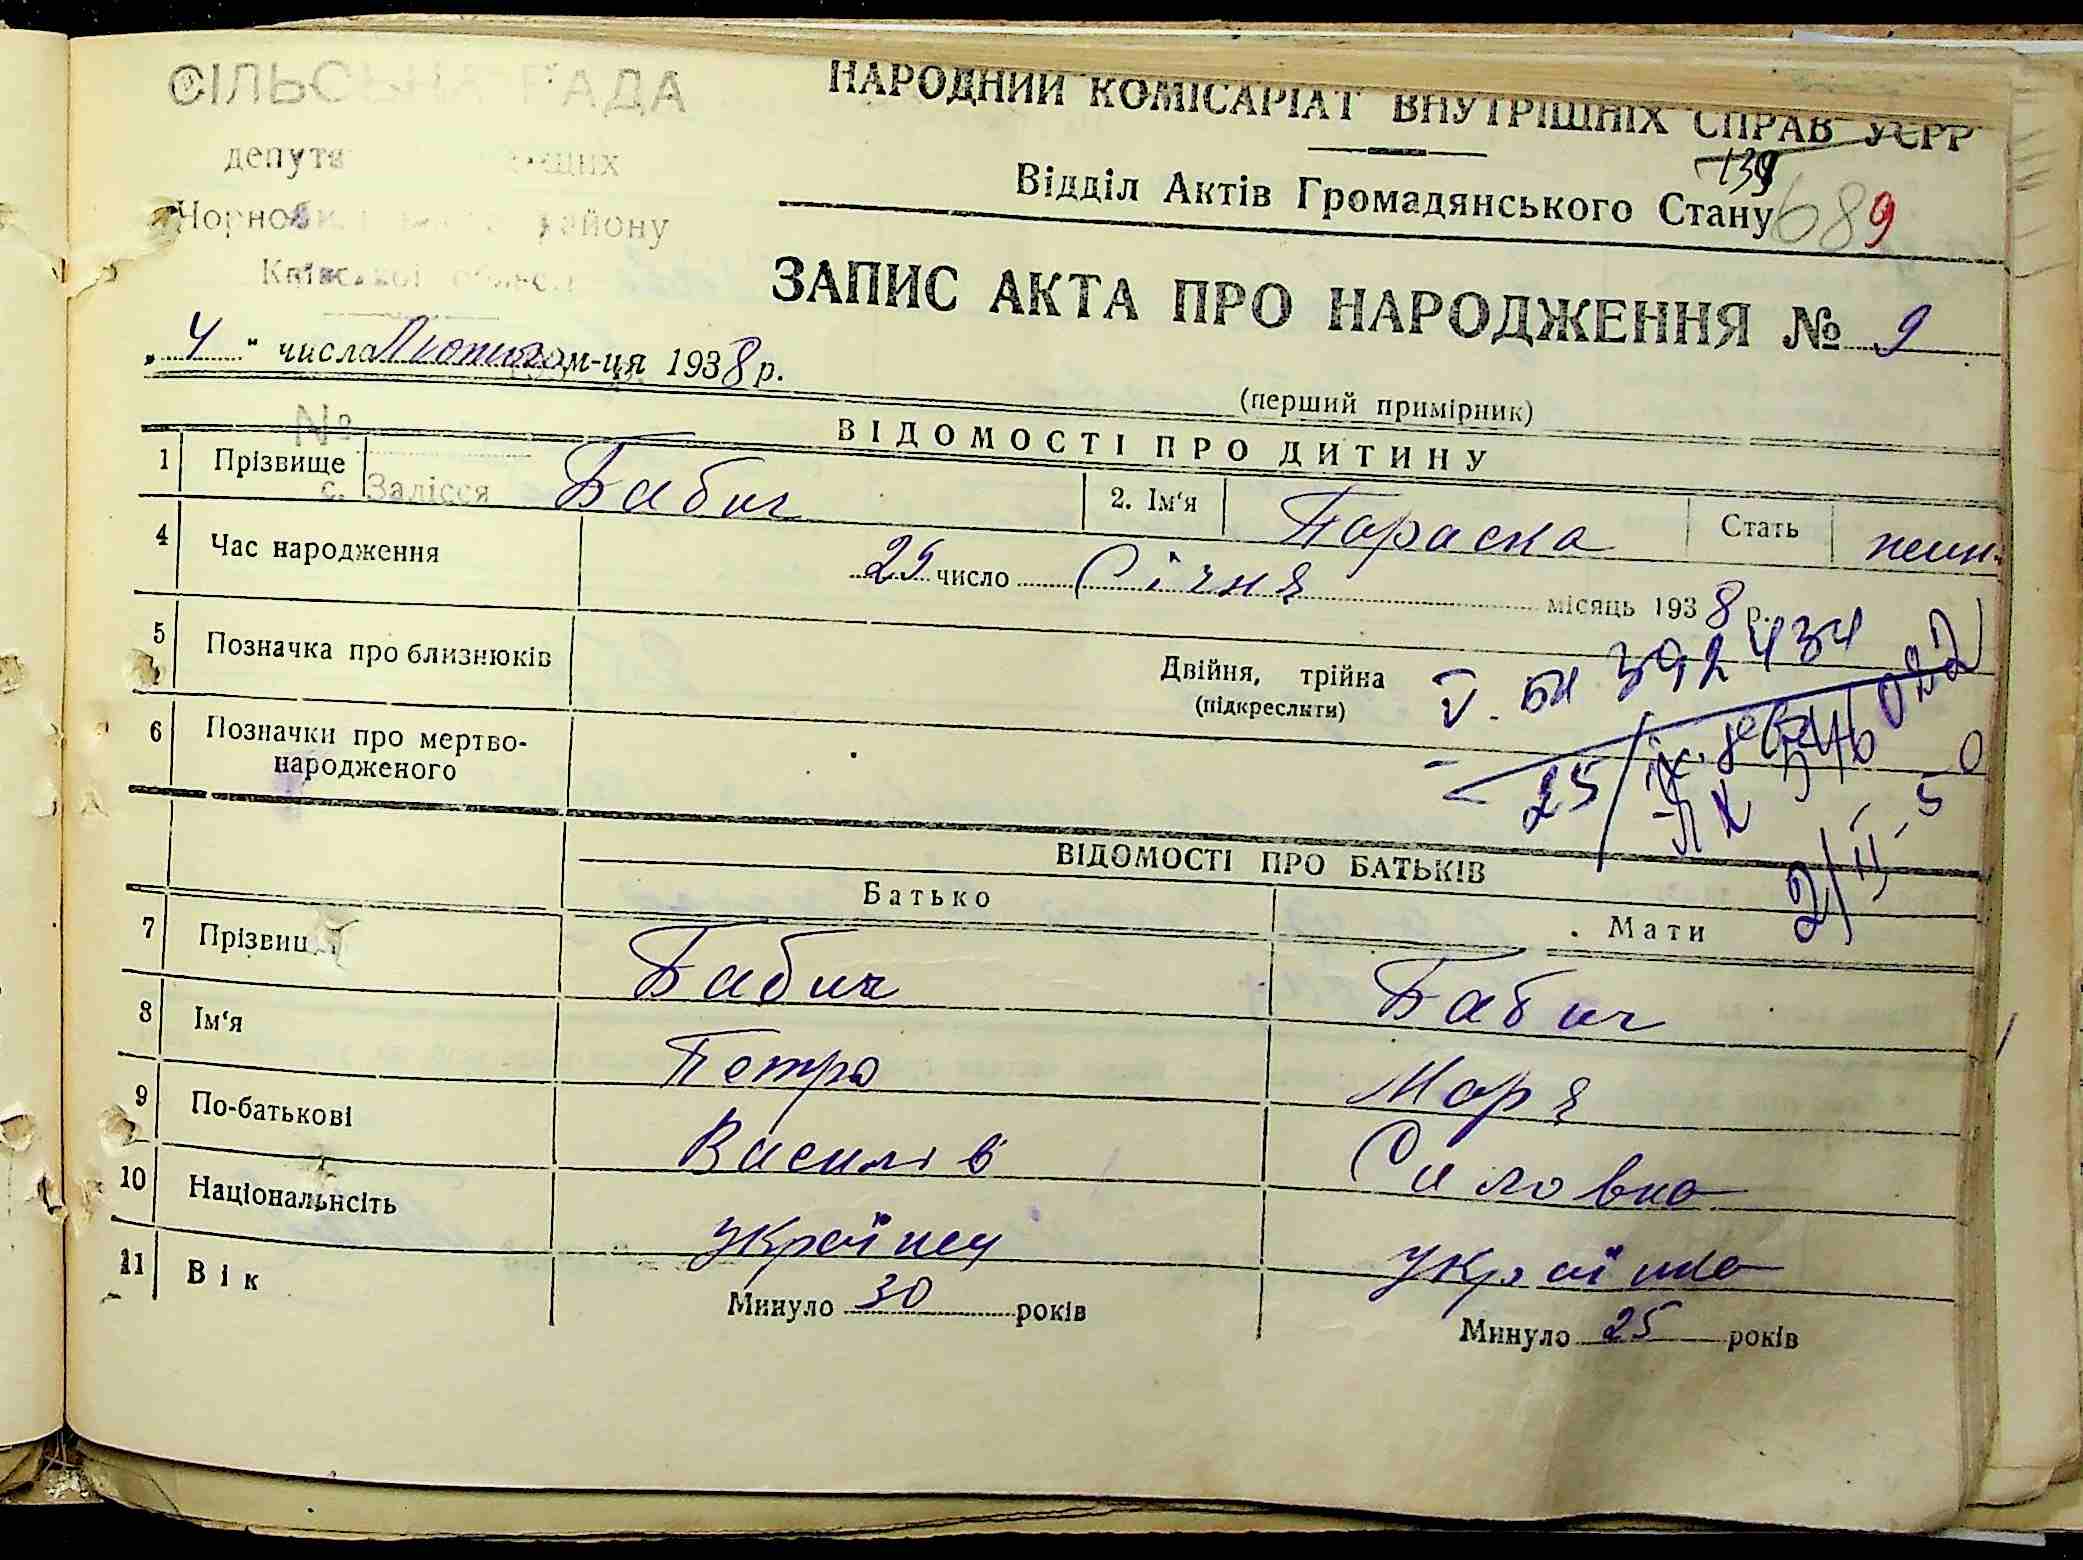 СІЛЬСЬКА РАДА
району
Київської
с. Залісся
НАРОДНИЙ КОМІСАРІАТ ВНУТРІШНІХ СПРАВ УСРР
Відділ Актів Громадянського Стану
139
689
ЗАПИС АКТА ПРО НАРОДЖЕННЯ № 9
„4“ числа Лютого м-ця 1938 р.
(перший примірник)
ВІДОМОСТІ ПРО ДИТИНУ
1 Прізвище Бабич 2. Ім'я Параска Стать жін.
4 Час народження 25 число Січня місяць 1938 р.
5 Позначка про близнюків Двійня, трійна
(підкреслити)
392434
6 Позначки про мертво-
народженого
25
ВІДОМОСТІ ПРО БАТЬКІВ
Батько Мати
7 Прізвищ Бабич Бабич
8 Ім'я Петро Маря
9 По-батькові Василів Силовна
10 Національнсіть українец украінка
11 Вік Минуло 30 років Минуло 25 років